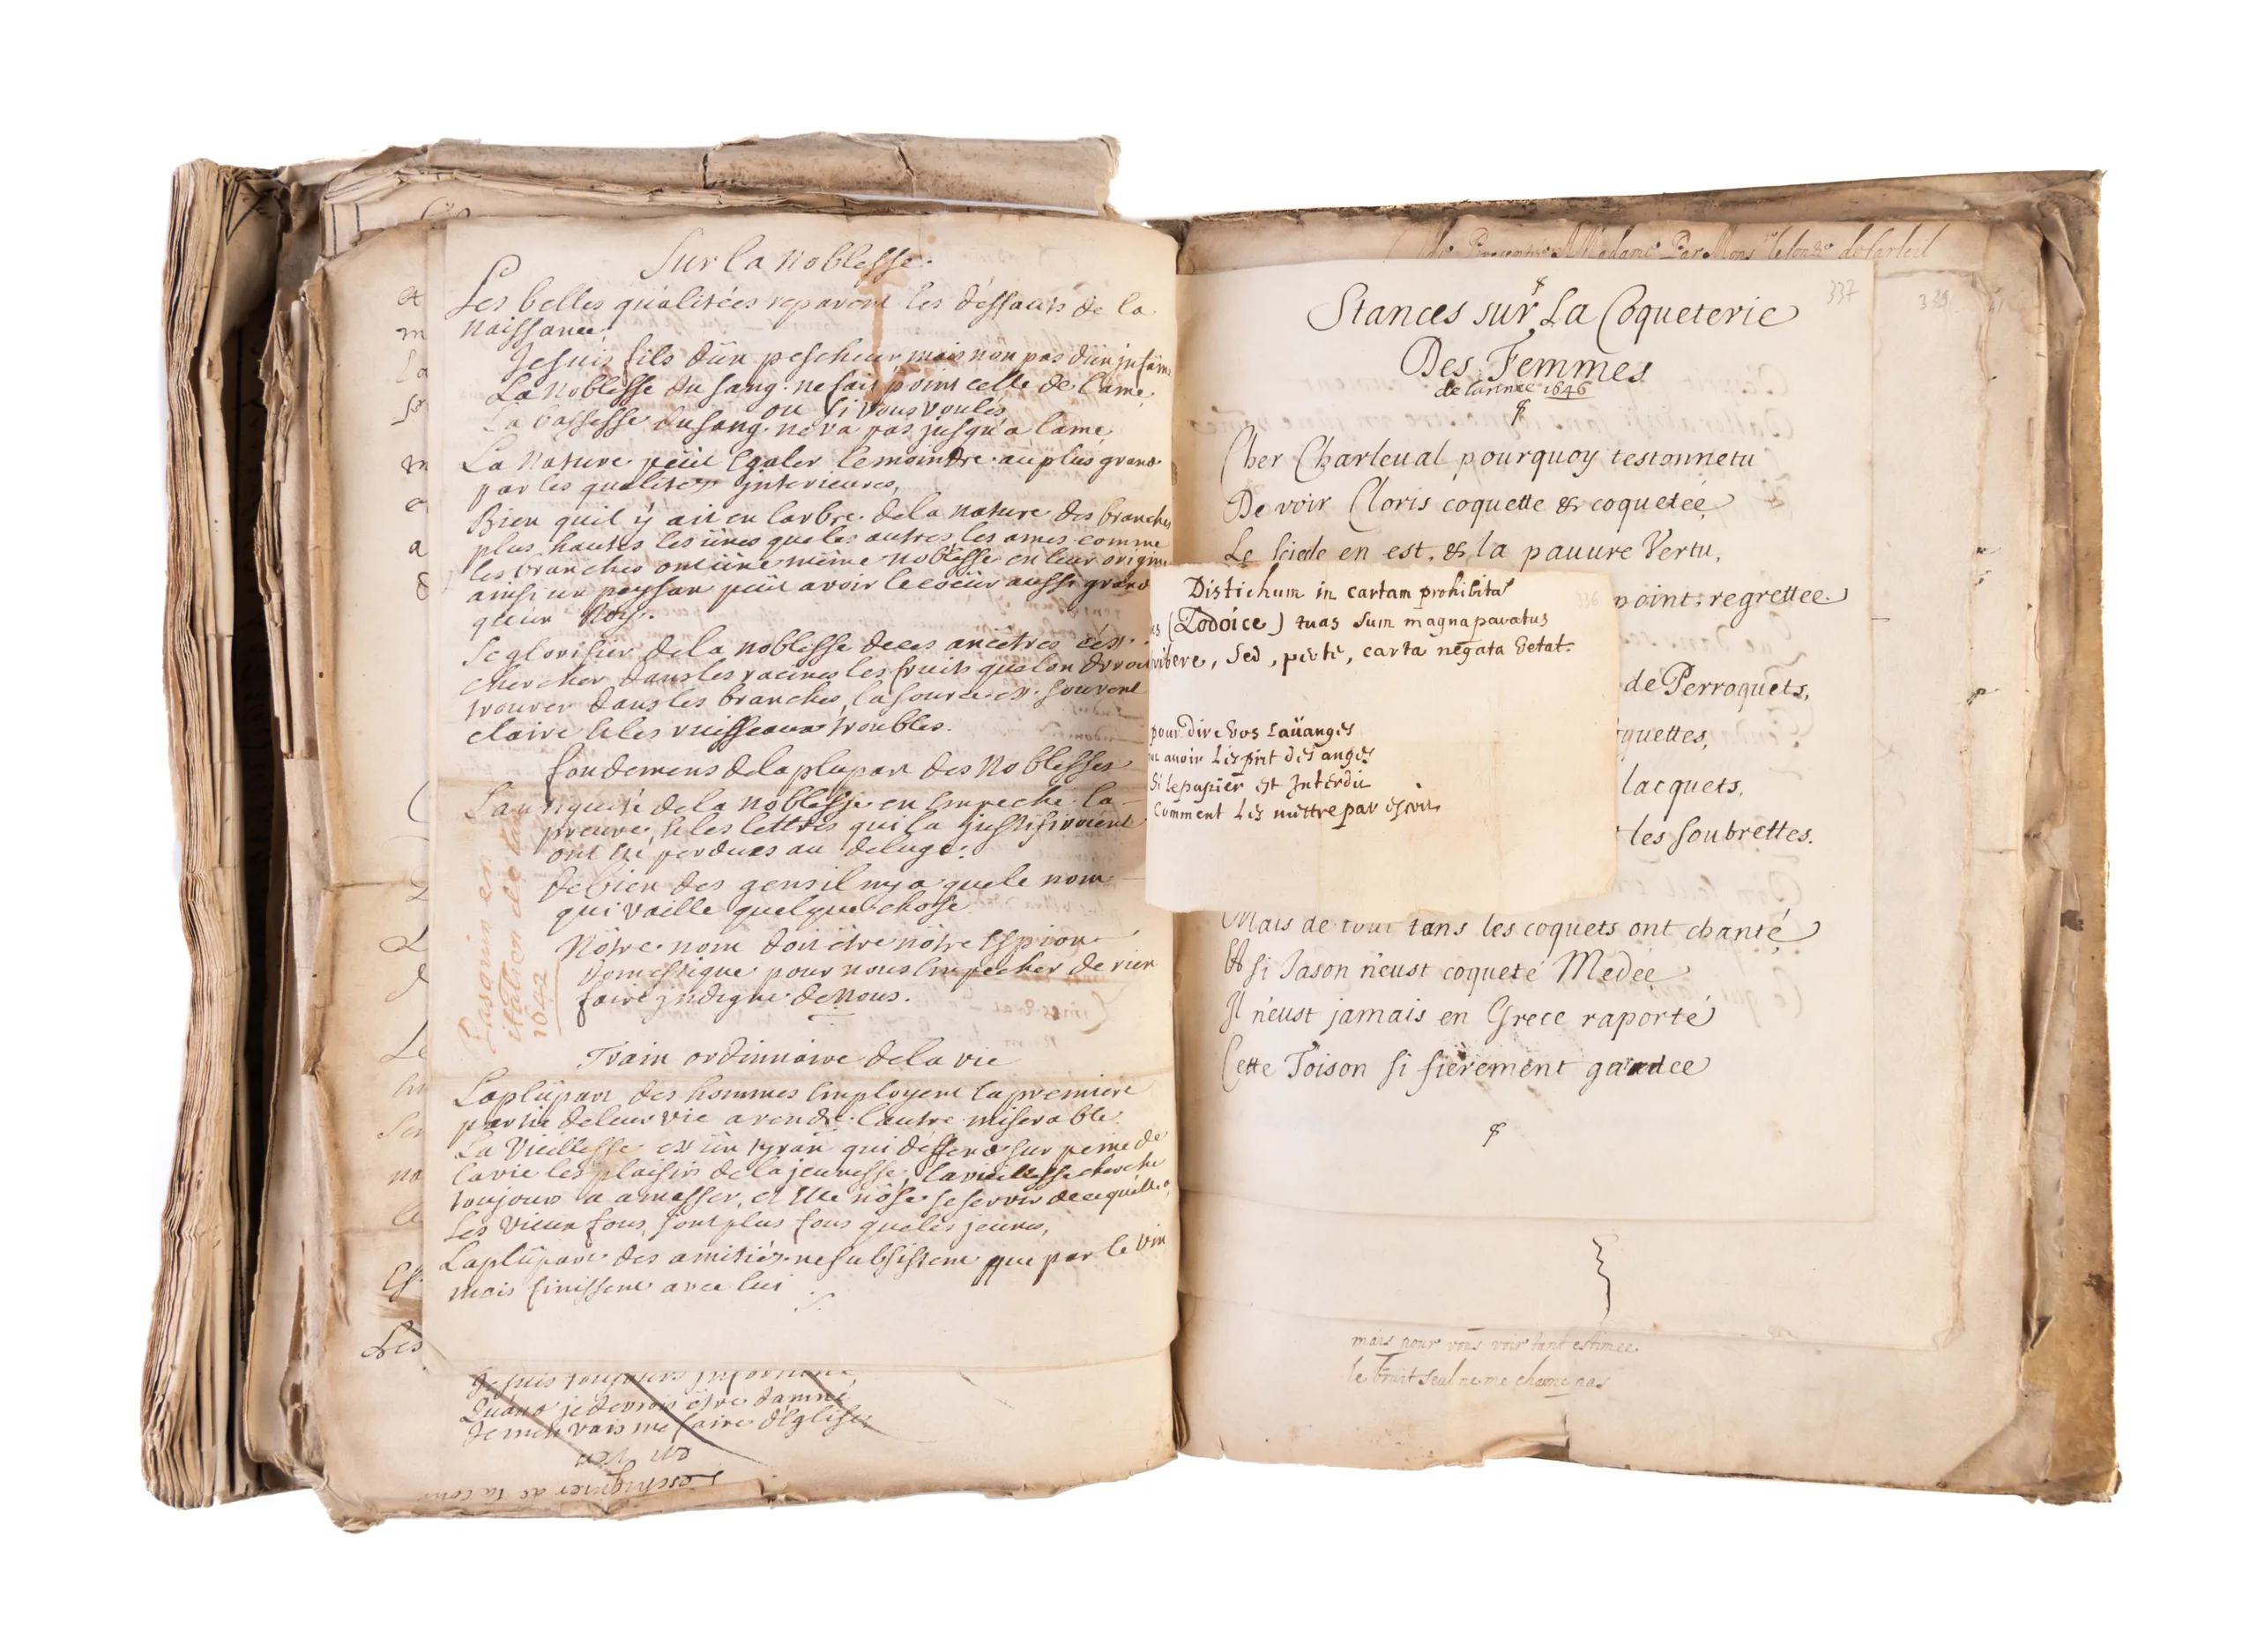 Sur la noblesse.
Les belles qualitées reparent les deffauts de la
naissance.
Je suis fils d'ün pescheur, mais nön pas d'ün jnfame
La noblesse du sang ne fait point celle de l'ame,
ou si vous voulés
La bassesse du sang ne va pas jusqu'a lame,
La nature peüt Egaler lemoindre auplus grand
par les qualitez jnterieures,
Bien quil ÿ ait en larbre dela nature des branches
plus hautes les ünes queles autres, les ames comme
les branches ont üne même noblesse en leur origine
ainsi un paysan peüt avoir le coeür aussi grand
qu'un Roy.
Se glorifier dela noblesse deces ancêtres cest
chercher dans les racines les fruits quelon devroit
trouver dans les branches, la source est souvent
claire & les ruisseaux troubles.
fondemens delaplupart des noblesses
Lantiquité dela noblesse en Empeche la
preuve, & les lettres qui la justifiroient
ont été perdues au deluge.
de bien des gens il ny a que le nom
qui vaille quelque chose
Nôtre nom doit être nôtre Espion
domestique pour nous Empecher de rien
faire jndigne de nous.
Pasquin en
italien de
1642
Train ordinnaire dela vie
Laplüpart des hommes Employent la premiere
partie deleur vie a rendre l'autre miserable.
La Vieillesse est ün tyran qui deffend sur peine de
la vie les plaisirs delajeunesse, la vieillesse cherche
toujours a amasser, et Elle nôse se servir de ce quelle a,
Les Vieux fous, sont plus fous queles jeunes,
Laplüpart des amitiéz ne subsistent que par le vin
mais finissent avec lui
Je suis toujours jnfortuné,
Quand je devrois être damné
Je men vais me faire d'Eglise
Presentée A Madame Par Mons
337
Stances sur La Coqueterie
Des Femmes
de lannee 1646
Cher Charleual pourquoy testonnetu
De voir Cloris coquette & coquetée
Le siecle en est, & la pauure Vertu,
point regrettee.
de Perroquets,
quettes,
lacquets,
les soubrettes.
Mais de tout tans les coquets ont chanté
Et si Jason n'eust coqueté Medée
Il n'eust jamais en Grece raporté
Cette Toison si fierement gardee
336
Distichum in cartam prohibita
(Lodoice) tuas sum magna paratus
ribere, sed, perte, carta negata vetat.
pour dire vos Laüanges
auoir Lesprit des anges
Si lepapier est Interdit
Comment Les mettre par escrit
mais pour vous voir tant estimee
le bruit seul ne me charme pas